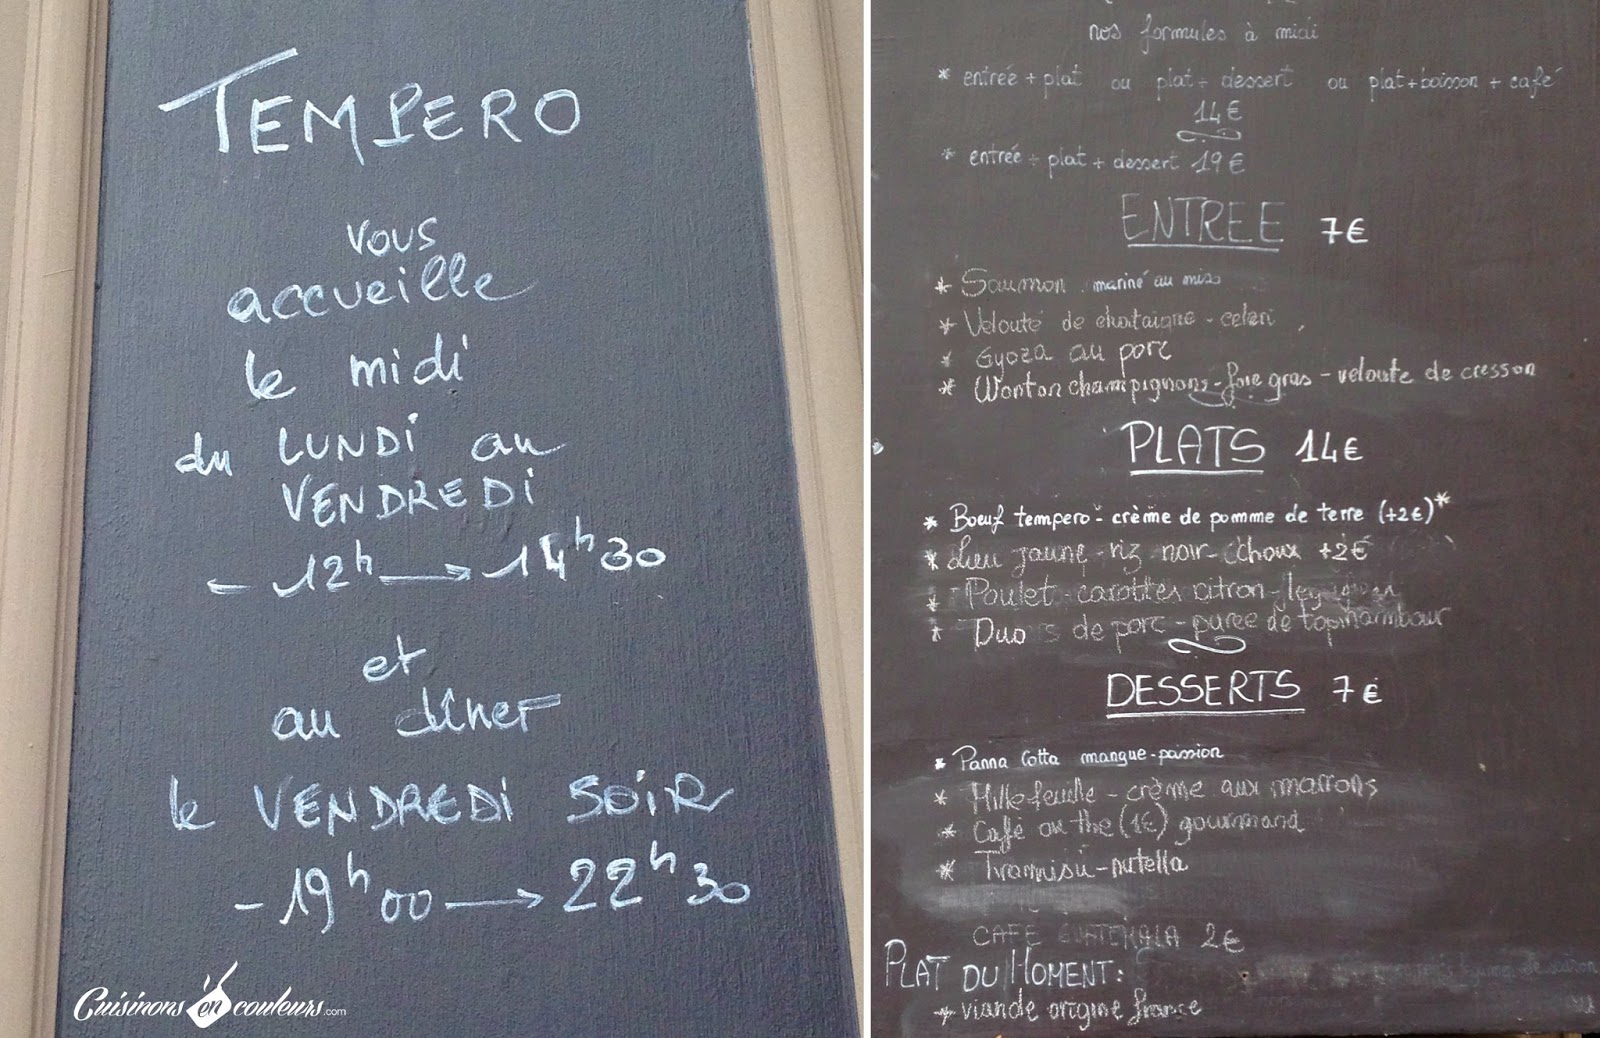 TEMPERO
vous
accueille
le midi
du LUNDI au
VENDREDI
- 12h → 14h30
et
au dîner
le VENDREDI SOIR
- 19h00 → 22h30
Cuisinons en couleurs.com
nos formules à midi
* entrée + plat ou plat + dessert ou plat + boisson + café
14€
* entrée + plat + dessert 19€
ENTREE 7€
* Saumon mariné au miso
* Velouté de chataigne - celeri
* Gyoza au porc
* Wonton champignons - foie gras - veloute de cresson
PLATS 14€
* Boeuf tempero - crème de pomme de terre (+2€)*
* Lieu jaune - riz noir - choux +2€
* Poulet - carottes citron -
* Duo de porc - puree de topinambour
DESSERTS 7€
* Panna Cotta mangue-passion
* Millefeuille - crème aux marrons
* Café ou the (1€) gourmand
* Tiramisù - nutella
CAFE GUATEMALA 2€
PLAT DU MOMENT:
* viande origine france